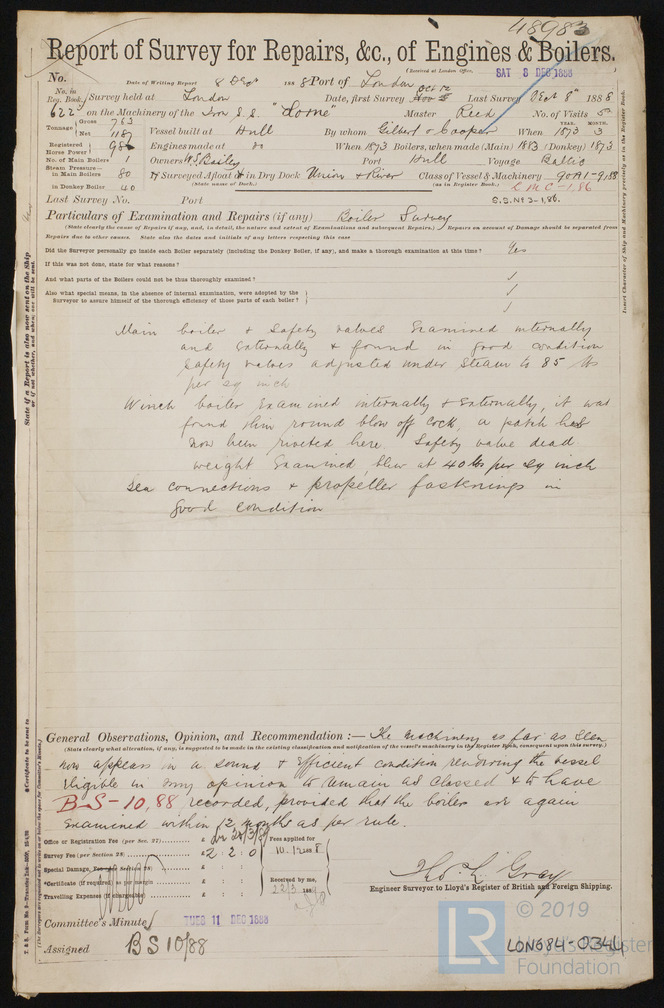 48983
Report of Survey for Repairs, &c., of Engines & Boilers.
(Received at London Office, SAT 8 DEC 1888
No. Date of Writing Report 8 Decr 1888 Port of London
No. in Reg. Book. Survey held at London Date, first Survey Oct 12 Last Survey Decr 8th 1888
622 on the Machinery of the Iron S.S. "Lorne" Master Reed No. of Visits 5
Tonnage Gross 763 Net 1187 Vessel built at Hull By whom Gilbert & Cooper When 1873 YEAR. MONTH. 3
Registered Horse Power 98 Engines made at When 1873 Boilers, when made (Main) 1883 (Donkey) 1873
No. of Main Boilers 1 Owners W.S. Bailey Port Hull Voyage Baltic
Steam Pressure in Main Boilers 80 If Surveyed Afloat or in Dry Dock Union & River Class of Vessel & Machinery 90A1-9.88
in Donkey Boiler 40 (State name of Dock.) (as in Register Book.) LMC-1,86
Last Survey No. Port S.S. No 3-1,86.
Particulars of Examination and Repairs (if any) Boiler Survey
(State clearly the cause of Repairs if any, and, in detail, the nature and extent of Examinations and subsequent Repairs.) Repairs on account of Damage should be separated from
Repairs due to other causes. State also the dates and initials of any letters respecting this case
Did the Surveyor personally go inside each Boiler separately (including the Donkey Boiler, if any), and make a thorough examination at this time? Yes
If this was not done, state for what reasons?
And what parts of the Boilers could not be thus thoroughly examined?
Also what special means, in the absence of internal examination, were adopted by the
Surveyor to assure himself of the thorough efficiency of those parts of each boiler?
Main boiler & safety valves Examined internally
and Externally & found in good condition
Safety valves adjusted under steam to 85 lbs
per sq inch
Winch boiler Examined internally & Externally, it was
found thin round blow off cock, a patch has
now been riveted here. Safety valve dead
weight Examined, blew at 40 lbs per sq inch
Sea connections & propeller fastenings in
good condition
General Observations, Opinion, and Recommendation:— The machinery as far as seen
(State clearly what alteration, if any, is suggested to be made in the existing classification and notification of the vessel's machinery in the Register Book, consequent upon this survey.)
now appears in a sound & efficient condition rendering the vessel
eligible in my opinion to remain as classed & to have
B-S-10,88 recorded, provided that the boilers are again
Examined within 12 months as per rule.
Office or Registration Fee (per Sec. 27) £ : : Fees applied for
Survey Fee (per Section 28) £2 : 2 : 0 10.12.1888
Special Damage, Fee (per Section 28) £ : :
Certificate (if required) as per margin £ : : Received by me,
Travelling Expenses (if chargeable) £ : : 22/3 188
Thos. L. Gray
Engineer Surveyor to Lloyd's Register of British and Foreign Shipping.
Committee's Minute TUES 11 DEC 1888
Assigned BS 10/88
State if a Report is also now sent on the Ship
or if not whether, and when, one will be sent.
Insert Character of Ship and Machinery precisely as in the Register Book.
Certificate to be sent to
(The Surveyors are requested not to write on or below the space for Committee's Minute.)
LR
© 2019
Lloyd's Register
Foundation
LON684-0344